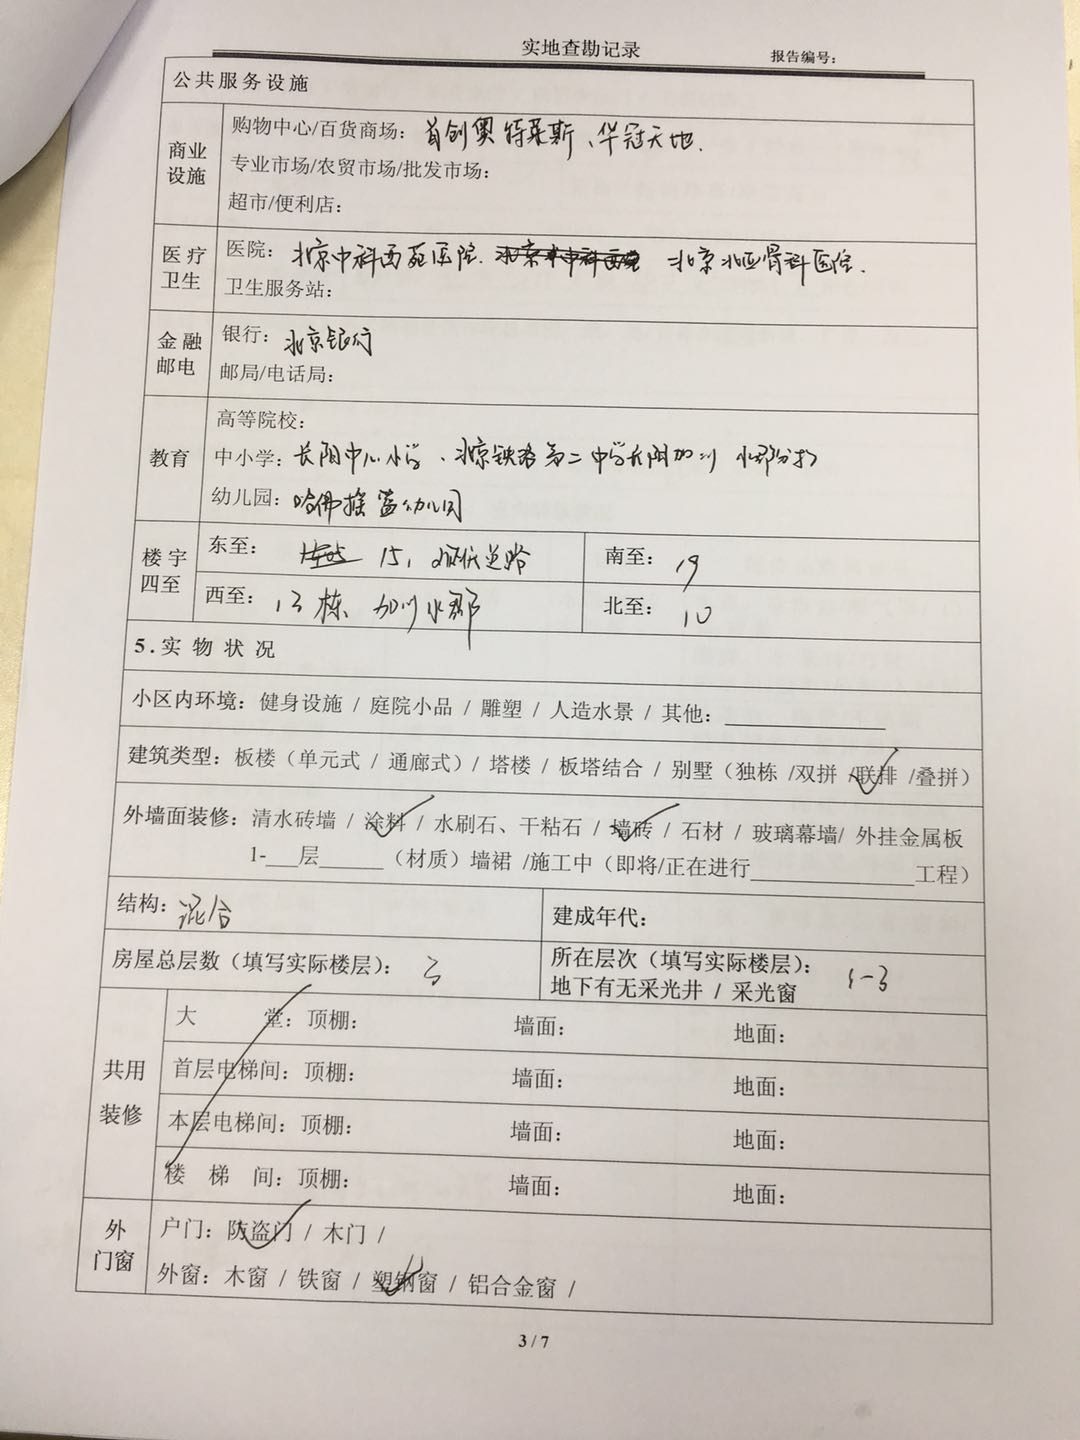 实地查勘记录
报告编号：
公共服务设施
商业设施
购物中心/百货商场：首创奥特莱斯、华冠天地.
专业市场/农贸市场/批发市场：
超市/便利店：
医疗卫生
医院：北京中科西苑医院. 北京北亚骨科医院.
卫生服务站：
金融邮电
银行：北京银行
邮局/电话局：
教育
高等院校：
中小学：长阳中心小学、北京铁路第二中学长阳加州水郡分校
幼儿园：哈佛摇篮幼儿园
楼宇四至
东至： 15, 道路
南至： 19
西至：13栋 加州水郡
北至： 10
5.实物状况
小区内环境：健身设施 / 庭院小品 / 雕塑 / 人造水景 / 其他：
建筑类型：板楼（单元式 / 通廊式）/ 塔楼 / 板塔结合 / 别墅（独栋 /双拼 /联排 /叠拼）
外墙面装修：清水砖墙 / 涂料 / 水刷石、干粘石 / 墙砖 / 石材 / 玻璃幕墙/ 外挂金属板
1-___层______（材质）墙裙 /施工中（即将/正在进行______________工程）
结构：混合
建成年代：
房屋总层数（填写实际楼层）： 3
所在层次（填写实际楼层）： 1-3
地下有无采光井 / 采光窗
共用装修
大堂：顶棚： 墙面： 地面：
首层电梯间：顶棚： 墙面： 地面：
本层电梯间：顶棚： 墙面： 地面：
楼梯间：顶棚： 墙面： 地面：
外门窗
户门：防盗门 / 木门 /
外窗：木窗 / 铁窗 / 塑钢窗 / 铝合金窗 /
3 / 7